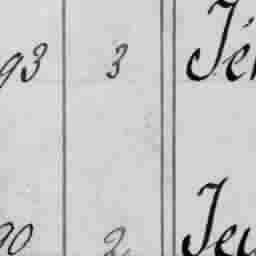 93 3 Jé
90 2 Jeu